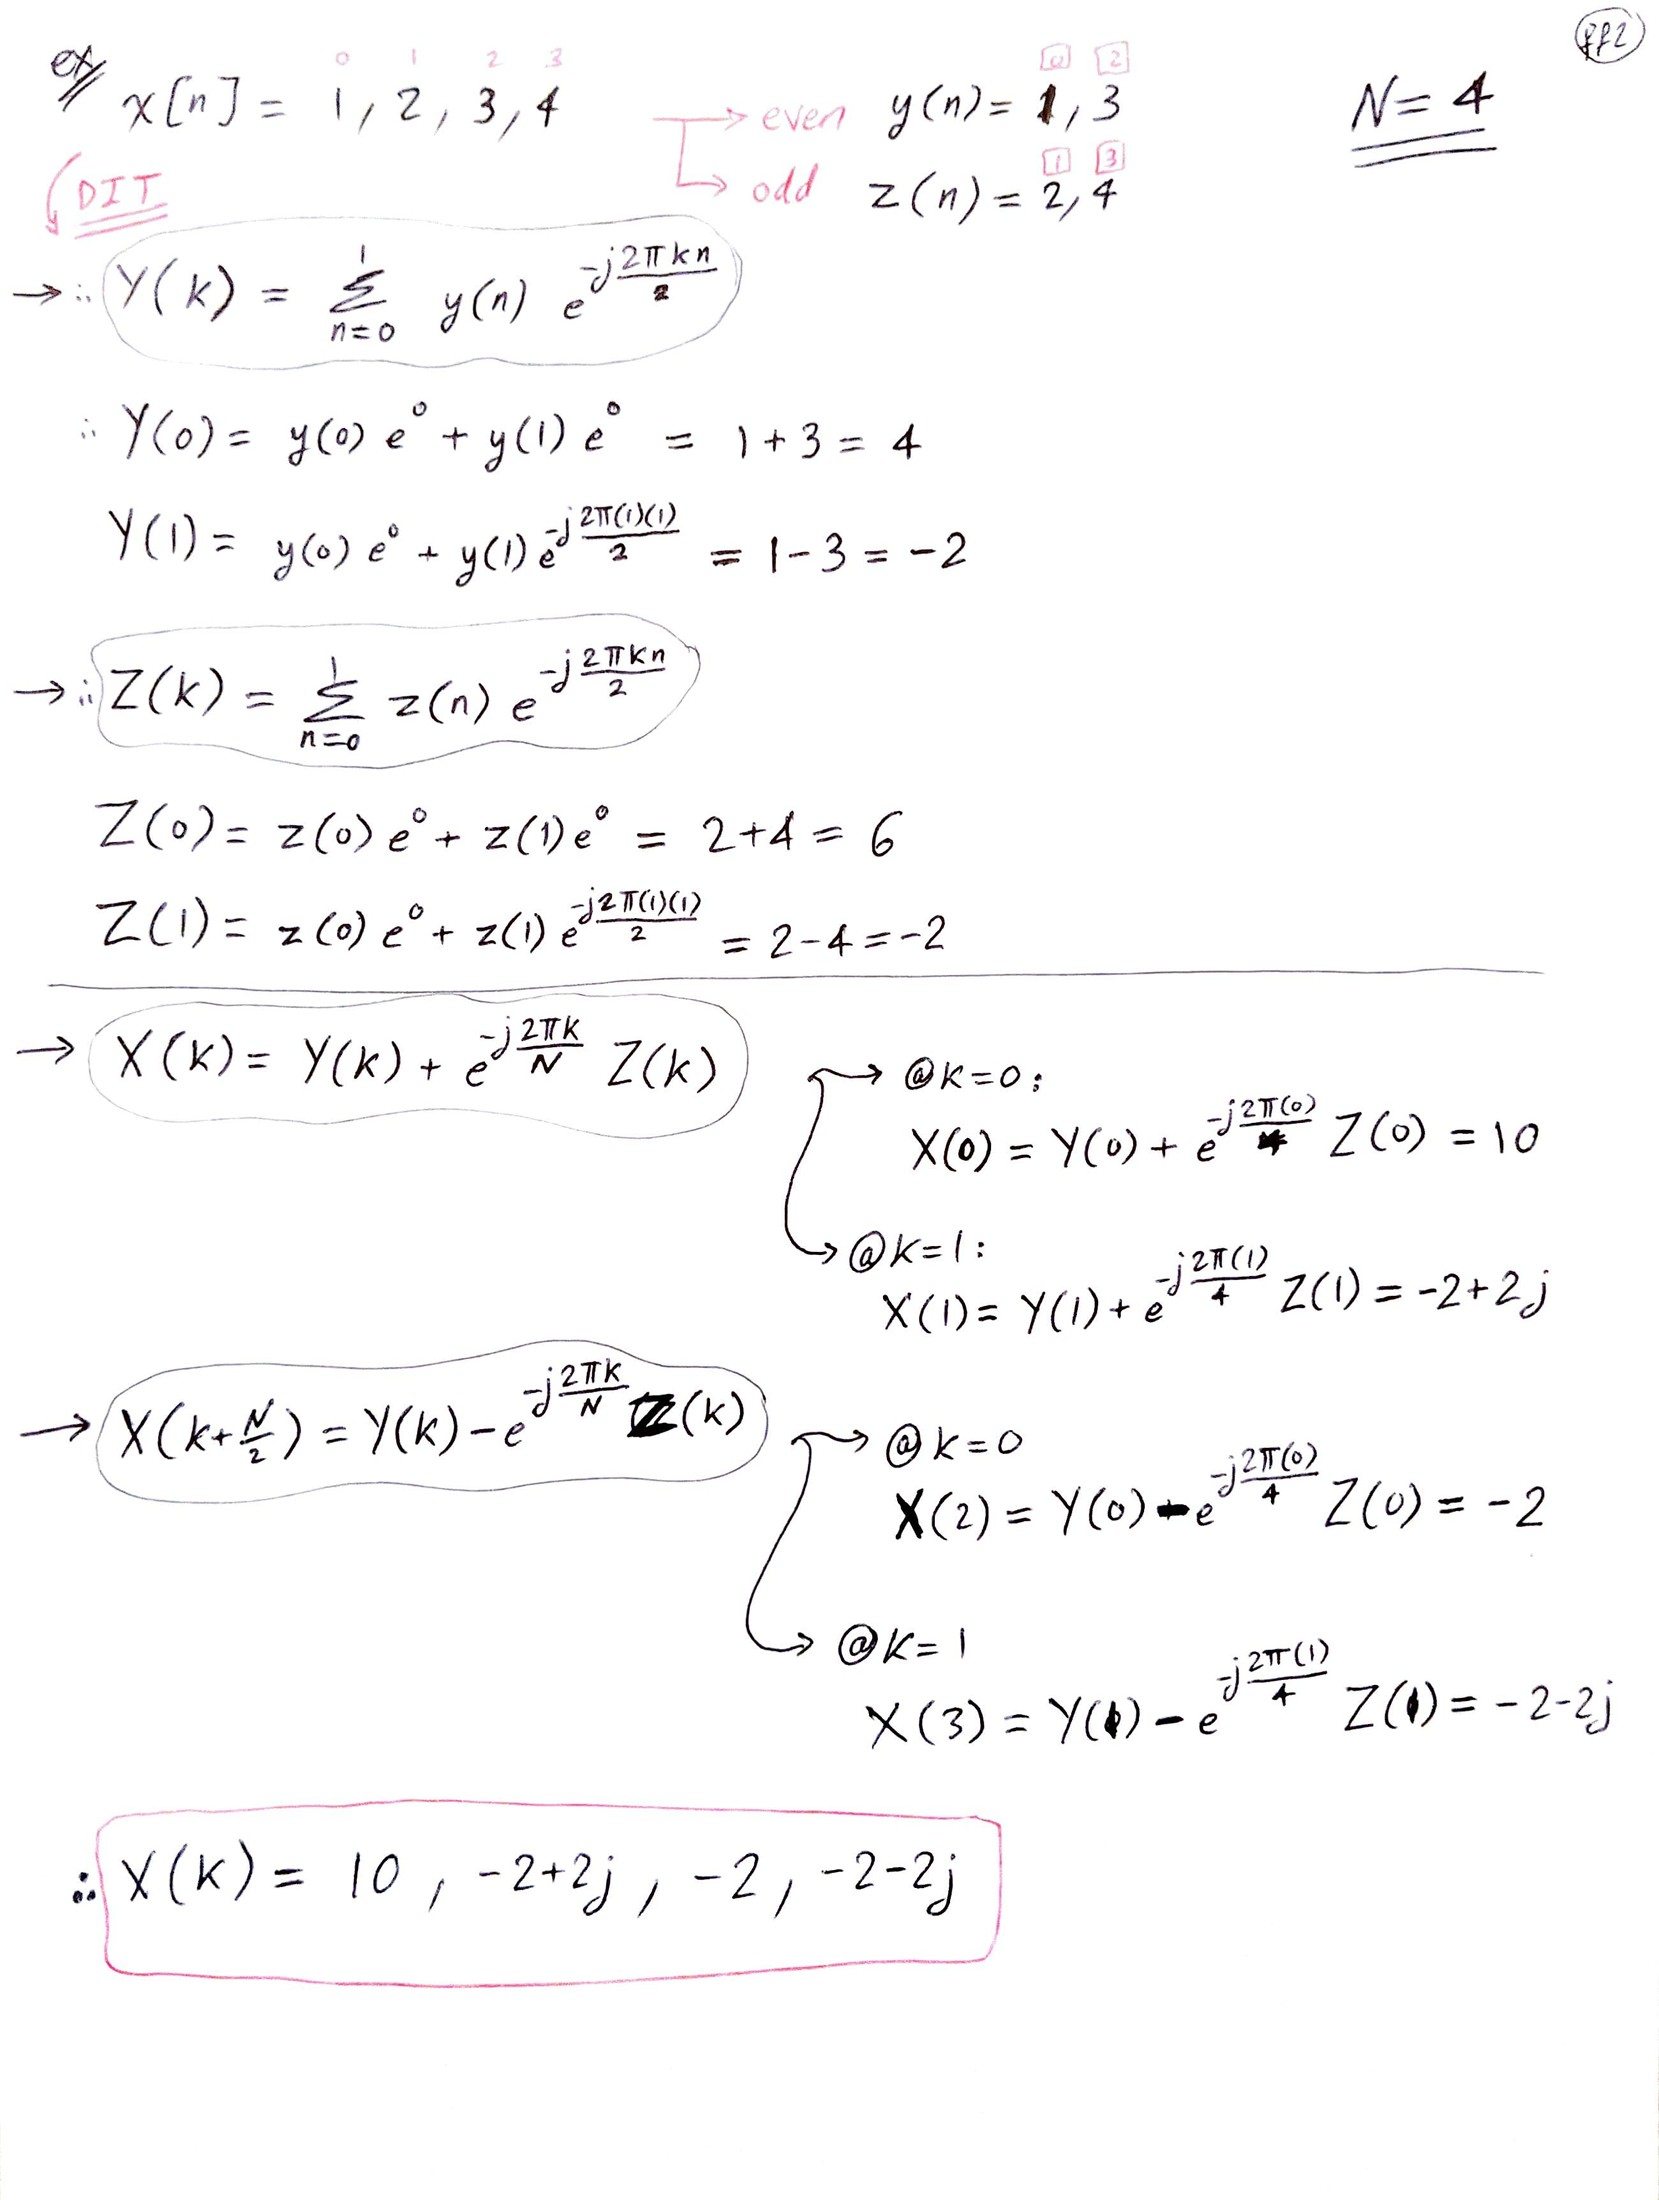 ex
0 1 2 3
x[n] = 1, 2, 3, 4
→ even y(n) = 1, 3
0 2
N = 4
DIT
→ odd z(n) = 2, 4
1 3
→ ∴ Y(k) = Σ_{n=0}^{1} y(n) e^{-j2πkn/2}
∴ Y(0) = y(0) e^0 + y(1) e^0 = 1 + 3 = 4
Y(1) = y(0) e^0 + y(1) e^{-j2π(1)(1)/2} = 1 - 3 = -2
→ ∴ Z(k) = Σ_{n=0}^{1} z(n) e^{-j2πkn/2}
Z(0) = z(0) e^0 + z(1) e^0 = 2+4 = 6
Z(1) = z(0) e^0 + z(1) e^{-j2π(1)(1)/2} = 2-4 = -2
→ X(k) = Y(k) + e^{-j2πk/N} Z(k)
→ @k=0:
X(0) = Y(0) + e^{-j2π(0)/4} Z(0) = 10
→ @k=1:
X(1) = Y(1) + e^{-j2π(1)/4} Z(1) = -2+2j
→ X(k+N/2) = Y(k) - e^{-j2πk/N} Z(k)
→ @k=0
X(2) = Y(0) - e^{-j2π(0)/4} Z(0) = -2
→ @k=1
X(3) = Y(1) - e^{-j2π(1)/4} Z(1) = -2-2j
∴ X(k) = 10, -2+2j, -2, -2-2j